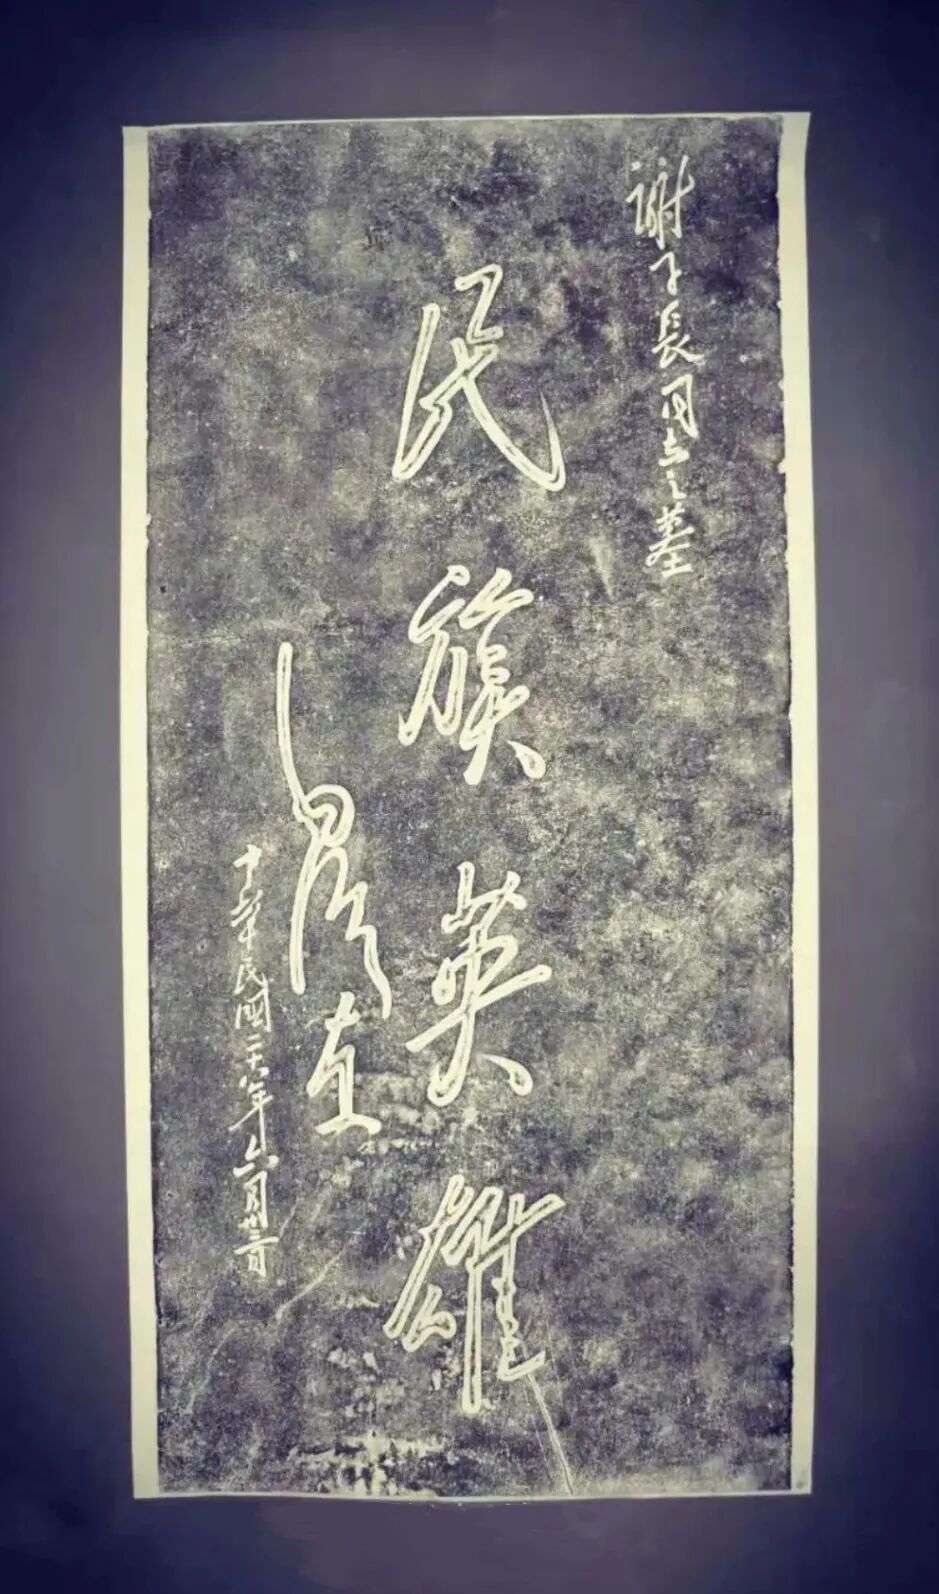 謝子長同志之墓
民族英雄
毛澤東
中華民國二十八年六月廿三日